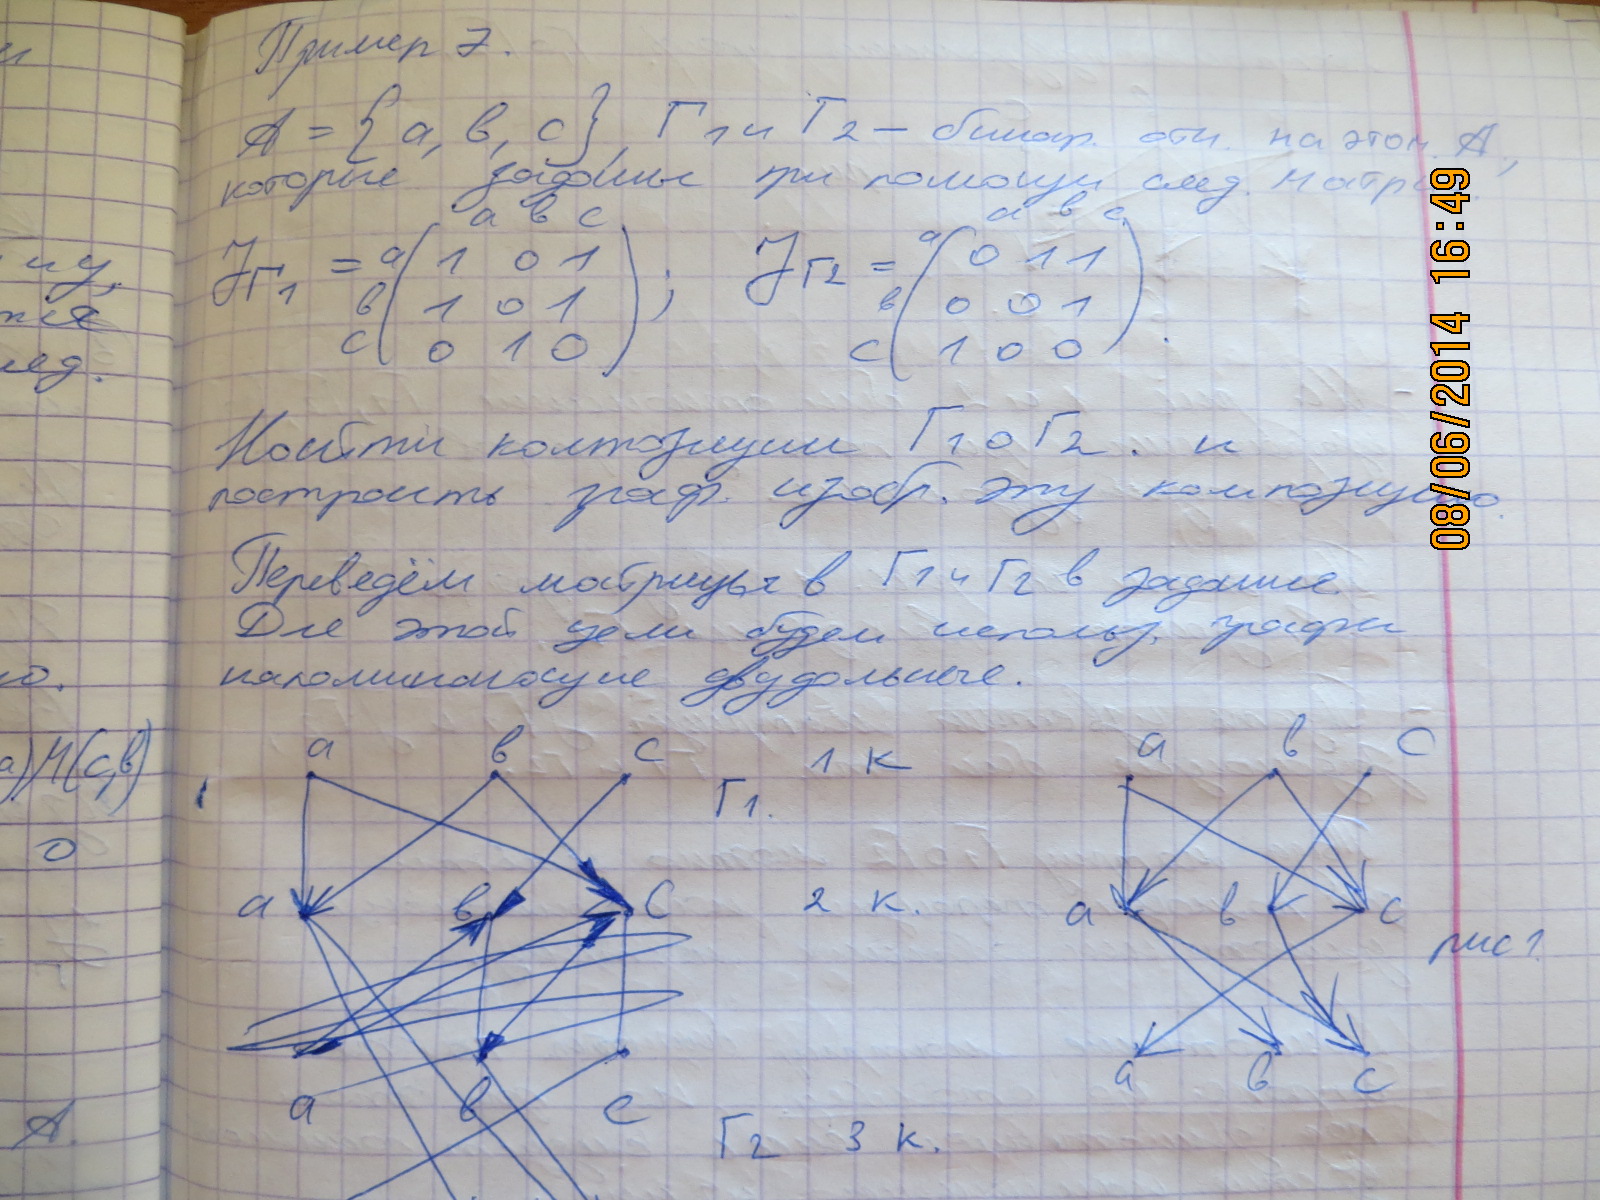 Пример 7.
A = {a, в, c}, Г1 и Г2 – бинар. отн. на этом A,
которые заданы при помощи след. матри
а в с
а в с
JГ1 = a ( 1 0 1
в 1 0 1
c 0 1 0 ) ;
JГ2 = a ( 0 1 1
в 0 0 1
c 1 0 0 ) .
Найти композиции Г1 о Г2. и
построить граф. изобр. эту композицию.
Переведём матрицы в Г1 и Г2 в задание.
Для этой цели будем использ. графи
напоминающие двудольные.
a в c 1 к
Г1.
a в c 2 к.
a в c
Г2 3 к.
a в c
a в c
рис 1.
a в c
и
иу,
лед.
ю.
а)И(c,в)
0
A.
08/06/2014 16:49